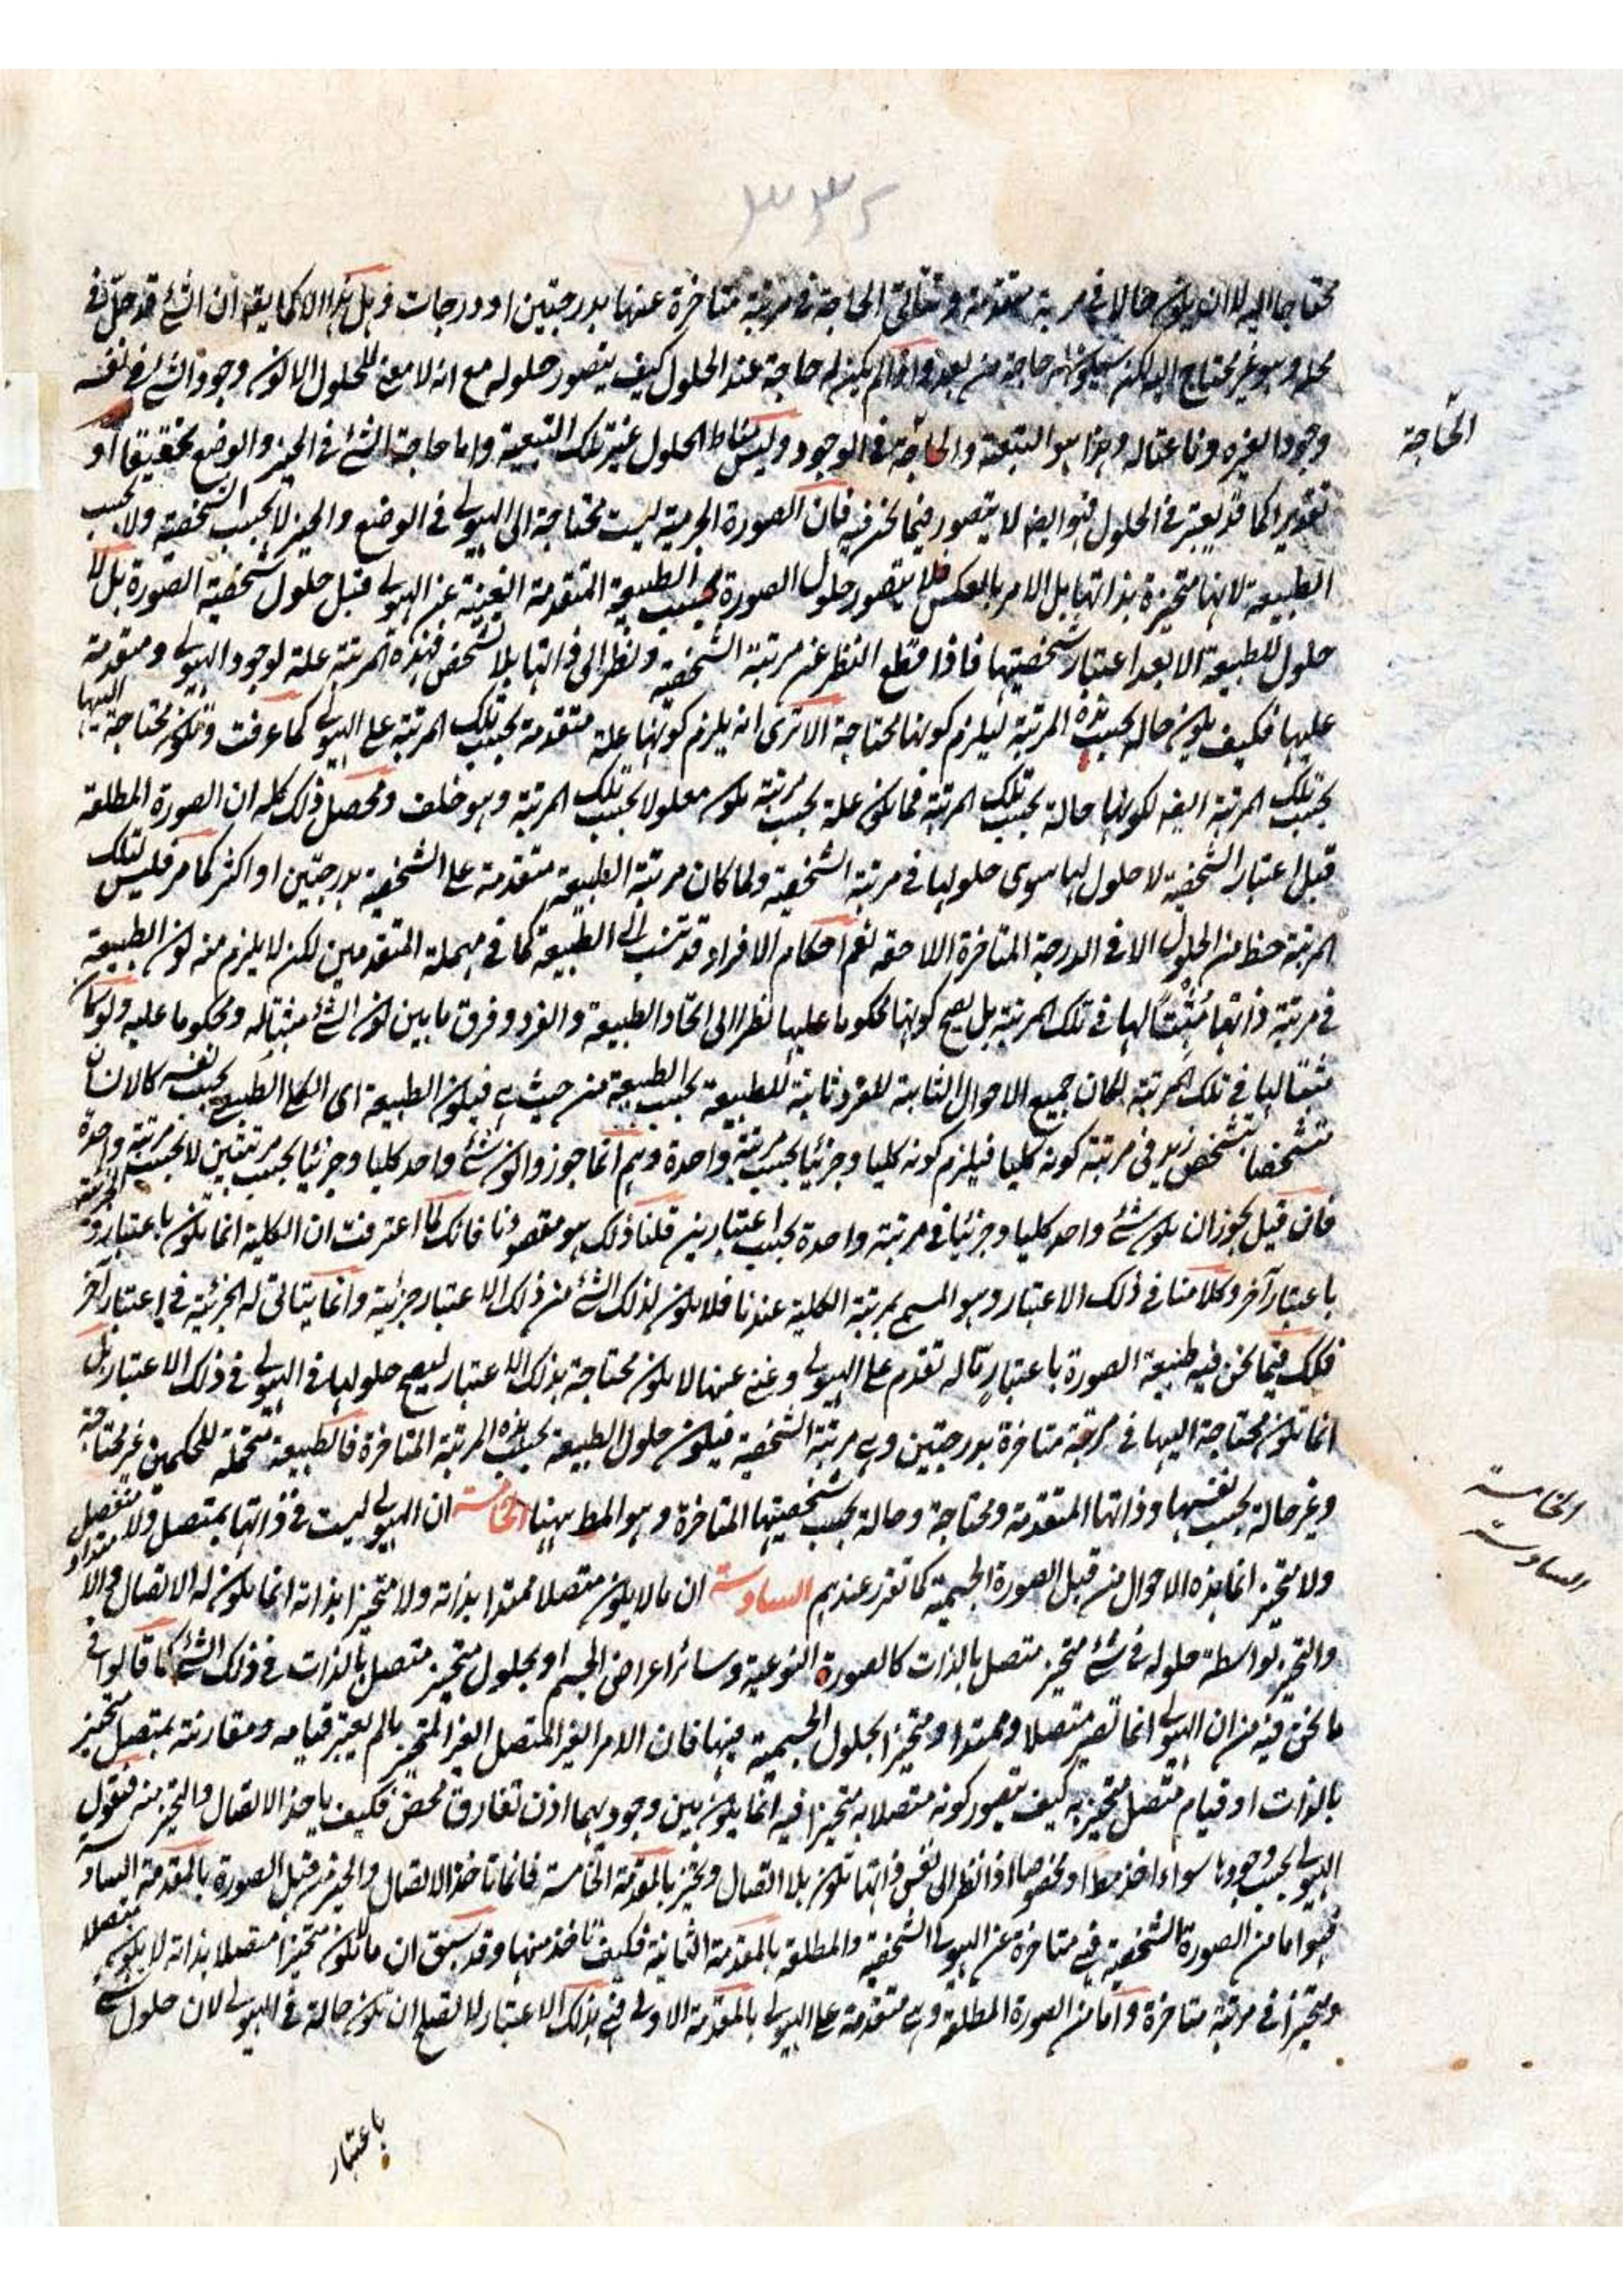 ٣٣٢
محتاجا اليه لا ان يكون حالا في مرتبة متقدمة وتتأتى الحاجة في مرتبة متاخرة عنها بدرجتين او درجات وهل هذا الا كما يقه ان الشئ قد حل في
محل وهو غير محتاج اليه لكن سيكون له حاجة من بعد واذا لم يكن له حاجة عند الحلول كيف يتصور حلوله مع انه لا معنى للحلول الا كون وجود الشئ في نفسه
وجودا لغيره وناعتا له وهذا هو التبعية والحاجة في الوجود وليس مناط الحلول غير تلك التبعية واما حاجة الشئ في الحيز والوضع تحقيقا او
الحاجة
تقديرا كما قد يعتبر في الحلول فهو ايضا لا يتصور فيما نحن فيه فان الصورة الجرمية ليست محتاجة الى الهيولى في الوضع والحيز لا بحسب الشخصية ولا بحسب
الطبيعة لانها متحيزة بذاتها بل الامر بالعكس فلا يتصور حلول الصورة بحسب الطبيعة المتقدمة الغنية عن الهيولى قبل حلول شخصية الصورة بل لا
حلول للطبيعة الا بعد اعتبار شخصيتها فاذا قطع النظر عن مرتبة الشخصية ونظر الى ذاتها بلا تشخص فهذه المرتبة علة لوجود الهيولى ومتقدمة
عليها فكيف يكون حاله بحسب هذه المرتبة ليلزم كونها محتاجة الا ترى انه يلزم كونها علة متقدمة بحسب تلك المرتبة على الهيولى كما عرفت وتكون محتاجة اليها
بحسب تلك المرتبة ايضا لكونها حالة بحسب تلك المرتبة فما يكون علة بحسب مرتبة يكون معلولا بحسب تلك المرتبة وهو خلف ومحصل ذلك كله ان الصورة المطلقة
قبل اعتبار الشخصية لا حلول لها سوى حلولها في مرتبة الشخصية ولما كان مرتبة الطبيعة متقدمة على الشخصية بدرجتين او اكثر كما مر فليس لتلك
المرتبة حظ من الحلول الا في الدرجة المتاخرة اللاحقة نعم احكام الافراد قد تنسب الى الطبيعة كما في مهملة المتقدمين لكن لا يلزم منه كون الطبيعة
في مرتبة ذاتها مثبتا لها في تلك المرتبة بل يصح كونها محكوما عليها نظرا الى اتحاد الطبيعة والفرد وفرق ما بين كون الشئ مثبتا له ومحكوما عليه ولو كان
مثبتا لها في تلك المرتبة لكان جميع الاحوال الثابتة للفرد ثابتة للطبيعة بحسب الطبيعة من حيث هي فيكون الطبيعة اى الكلى الطبيعي بحسب نفسه كالانسان
متشخصا بتشخص زيد في مرتبة كونه كليا فيلزم كونه كليا وجزئيا بحسب مرتبة واحدة وهم انما جوزوا كون شئ واحد كليا وجزئيا بحسب مرتبتين لا بحسب مرتبة واحدة
فان قيل يجوز ان يكون شئ واحد كليا وجزئيا في مرتبة واحدة بحسب اعتبارين قلنا ذلك هو مقصودنا فانك لما اعترفت ان الكلية انما يكون باعتبار
باعتبار آخر وكلامنا في ذلك الاعتبار وهو المسمى بمرتبة الكلية عندنا فلا يكون لذلك الشئ من ذلك الاعتبار جزئية وانما يتاتى له الجزئية في اعتبار آخر
فكك فيما نحن فيه طبيعة الصورة باعتبار ما له تقدم على الهيولى وغنى عنها لا يكون محتاجة بذلك الاعتبار ليصح حلولها في الهيولى في ذلك الاعتبار بل
انما تكون محتاجة اليها في مرتبة متاخرة بدرجتين وهى مرتبة الشخصية فيكون حلول الطبيعة بحسب هذه المرتبة المتاخرة فالطبيعة متحملة للحكمين غير محتاجة
وغير حالة بحسب نفسها وذاتها المتقدمة ومحتاجة وحالة بحسب شخصيتها المتاخرة وهو المط ههنا الخامسة ان الهيولى ليست في ذاتها بمتصل ولا منفصل ولا ممتد
الخامسة
ولا متحيز انما هذه الاحوال من قبل الصورة الجسمية كما تقرر عندهم السادسة ان ما لا يكون متصلا ممتدا بذاته ولا متحيزا بذاته انما يكون له الاتصال
السادسة
والتحيز بواسطة حلوله في شئ متحيز متصل بالذات كالصورة النوعية وسائر اعراض الجسم او بحلول متحيز متصل بالذات في ذلك الشئ كما قالوا في
ما نحن فيه من ان الهيولى انما تصير متصلا وممتدا ومتحيزا بحلول الجسمية فيها فان الامر الغير المتصل الغير المتحيز ما لم يعتبر قيامه ومقارنته بمتصل متحيز
بالذات او قيام متصل متحيز به كيف يتصور كونه متصلا به متحيزا فيه انما يكون بين وجوديهما اذن تفارق محض فكيف ياخذ الاتصال والتحيز منه فنقول
الهيولى بحسب وجودها سواء اخذ مطلقا او مخصوصا اذا نظر الى نفس ذاتها تكون بلا اتصال وتحيز بالمقدمة الخامسة فانما تاخذ الاتصال والحيز من قبل الصورة بالمقدمة السادسة
فهو اما من الصورة الشخصية فهى متاخرة عن الهيولى الشخصية والمطلقة بالمقدمة الثانية فكيف تاخذ منها وقد سبق ان ما لا يكون متحيزا متصلا بذاته لا يكون متصلا
ومتحيزا في مرتبة متاخرة واما من الصورة المطلقة وهى متقدمة على الهيولى بالمقدمة الاولى فهى بذلك الاعتبار لا تصلح ان تكون حالة في الهيولى لان حلول شئ
باعتبار